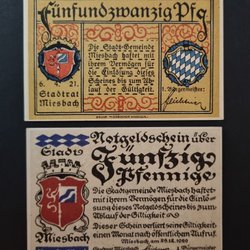 Fünfundzwanzig Pfg
Die Stadt-Gemeinde
Miesbach haftet
mit ihrem Vermögen für
die Einlösung dieses
Scheines bis zum Ab-
lauf der Gültigkeit.
6. 4. 21.
Stadtrat
Miesbach
1. Bürgermeister:
Notgeldschein über
Stadt
Fünfzig
Pfennige
Die Stadtgemeinde Miesbach haftet
mit ihrem Vermögen für die Einlö-
sung dieses Notgeldscheines bis zum
Ablauf der Gültigkeit
Dieser Schein verliert seine Gültigkeit
einen Monat nach öffentlichem Aufruf.
Miesbach
Miesbach, am